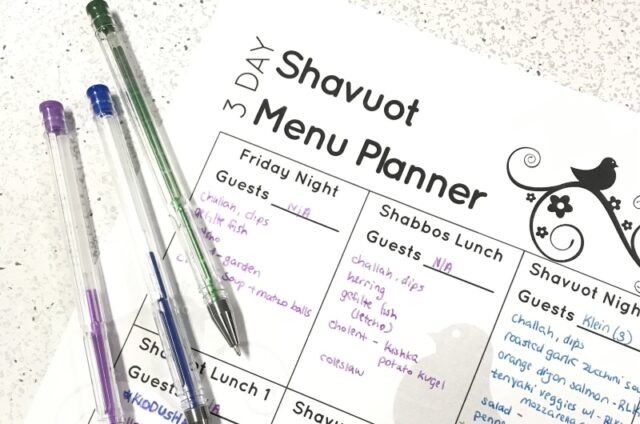 3 DAY
Shavuot
Menu Planner
Friday Night
Guests N/A
challah, dips
gefilte fish
garden
soup + matzo balls
Shabbos Lunch
Guests N/A
challah, dips
herring
gefilte fish
(letcho)
cholent - kishka
potato kugel
coleslaw
Shavuot Nigh
Guests Klein (3)
challah, dips
roasted garlic zucchini
orange dijon salmon -
teriyaki veggies w/
mozzarella
salad -
Lunch 1
Guests
KIDDUSH
Shavu